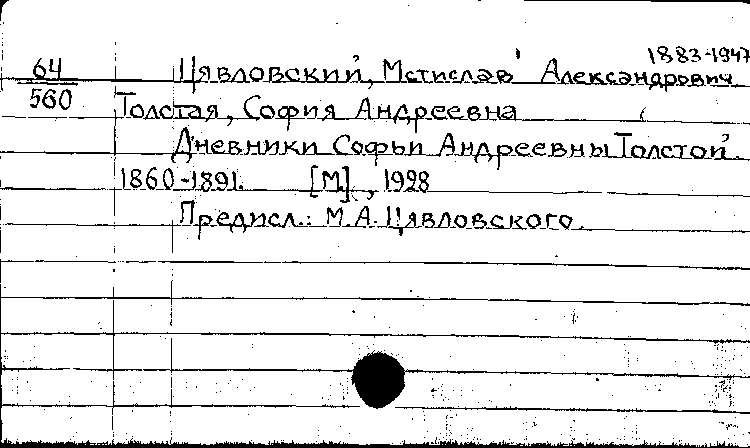 1883-1947
64 Цявловский, Мстислав Александрович
560 Толстая, София Андреевна
Дневники Софьи Андреевны Толстой.
1860-1891. [М], 1928
Предисл.: М.А. Цявловского.